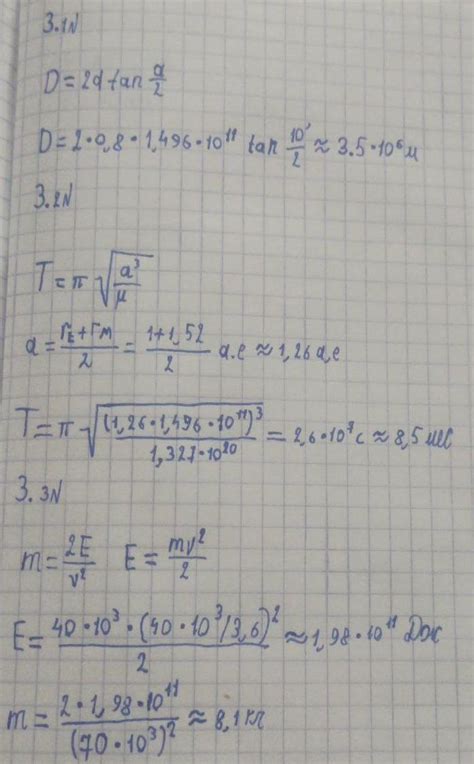 3.1N
D=2d tan a/2
D=2•0,8•1,496•10¹¹ tan 10'/2 ≈ 3.5•10⁶м
3.2N
T=π√(a³/μ)
a=(rE+rM)/2 = (1+1,52)/2 a.e ≈ 1,26a,e
T=π√((1,26•1,496•10¹¹)³/(1,327•10²⁰)) = 2,6•10⁷c ≈ 8,5 мес
3.3N
m=2E/v² E=mv²/2
E=(40•10³•(40•10³/3,6)²)/2 ≈ 1,98•10¹¹ Дж
m=(2•1,98•10¹¹)/(70•10³)² ≈ 8,1кг